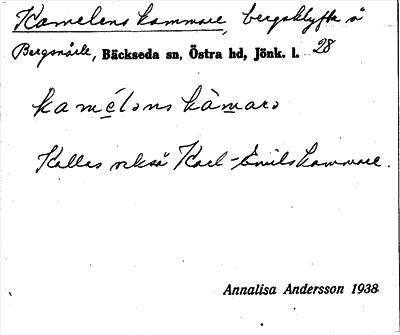 Kamelens kammare, bergsklyfta å
Bergsnärle, Bäckseda sn, Östra hd, Jönk. l. 28
kamélǝns kàmarǝ
Kallas också Karl-Emils kammare.
Annalisa Andersson 1938